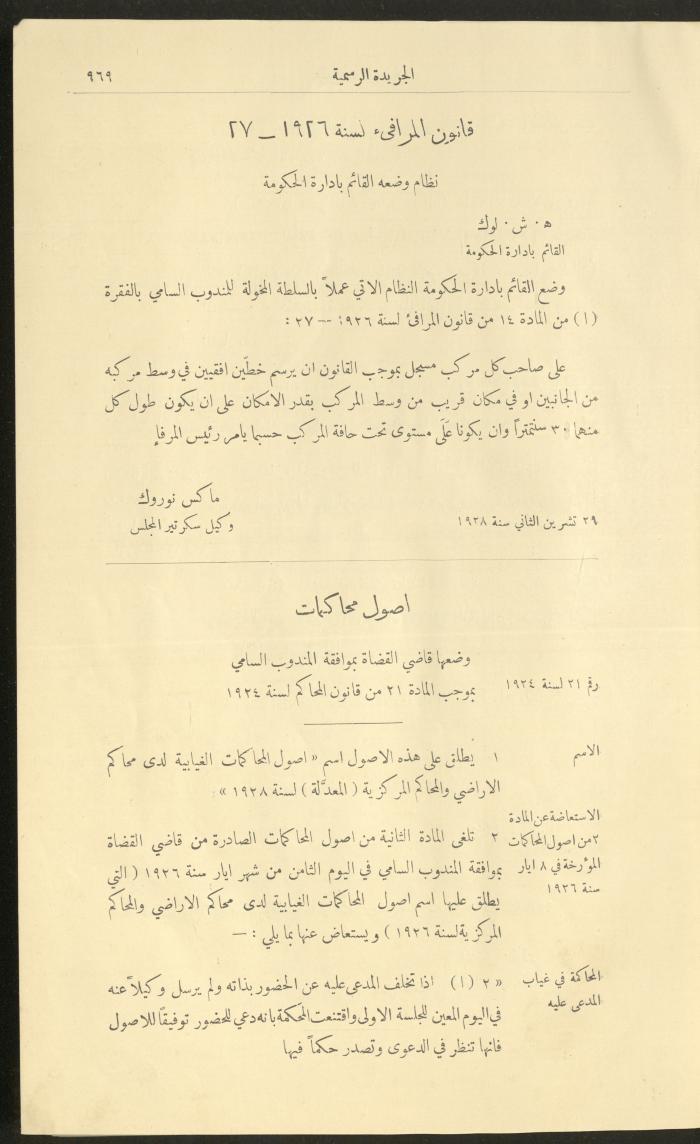 الجريدة الرسمية ٩٦٩
قانون المرافىء لسنة ١٩٢٦ — ٢٧
نظام وضعه القائم بادارة الحكومة
ﻫ . ش . لوك
القائم بادارة الحكومة
وضع القائم بادارة الحكومة النظام الاتي عملاً بالسلطة المخولة للمندوب السامي بالفقرة
(١) من المادة ١٤ من قانون المرافئ لسنة ١٩٢٦ — ٢٧ :
على صاحب كل مركب مسجل بموجب القانون ان يرسم خطّين افقيين في وسط مركبه
من الجانبين او في مكان قريب من وسط المركب بقدر الامكان على ان يكون طول كل
منهما ٣٠ سنتمتراً وان يكونا عَلَى مستوى تحت حافة المركب حسبما يامر رئيس المرفإ
ماكس نوروك
وكيل سكرتير المجلس
٢٩ تشرين الثاني سنة ١٩٢٨
اصول محاكمات
وضعها قاضي القضاة بموافقة المندوب السامي
بموجب المادة ٢١ من قانون المحاكم لسنة ١٩٢٤
رقم ٢١ لسنة ١٩٢٤
الاسم
١ يُطلق على هذه الاصول اسم « اصول المحاكمات الغيابية لدى محاكم
الاراضي والمحاكم المركزية ( المعدَّلة ) لسنة ١٩٢٨ »
الاستعاضة عن المادة
٢ من اصول المحاكمات
المؤرخة في ٨ ايار
سنة ١٩٢٦
٢ تلغى المادة الثانية من اصول المحاكمات الصادرة من قاضي القضاة
بموافقة المندوب السامي في اليوم الثامن من شهر ايار سنة ١٩٢٦ ( التي
يطلق عليها اسم اصول المحاكمات الغيابية لدى محاكم الاراضي والمحاكم
المركزية لسنة ١٩٢٦ ) ويستعاض عنها بما يلي : —
المحاكمة في غياب
المدعى عليه
« ٢ (١) اذا تخلف المدعى عليه عن الحضور بذاته ولم يرسل وكيلاً عنه
في اليوم المعين للجلسة الاولى واقتنعت المحكمة بانه دعي للحضور توفيقاً للاصول
فانها تنظر في الدعوى وتصدر حكماً فيها